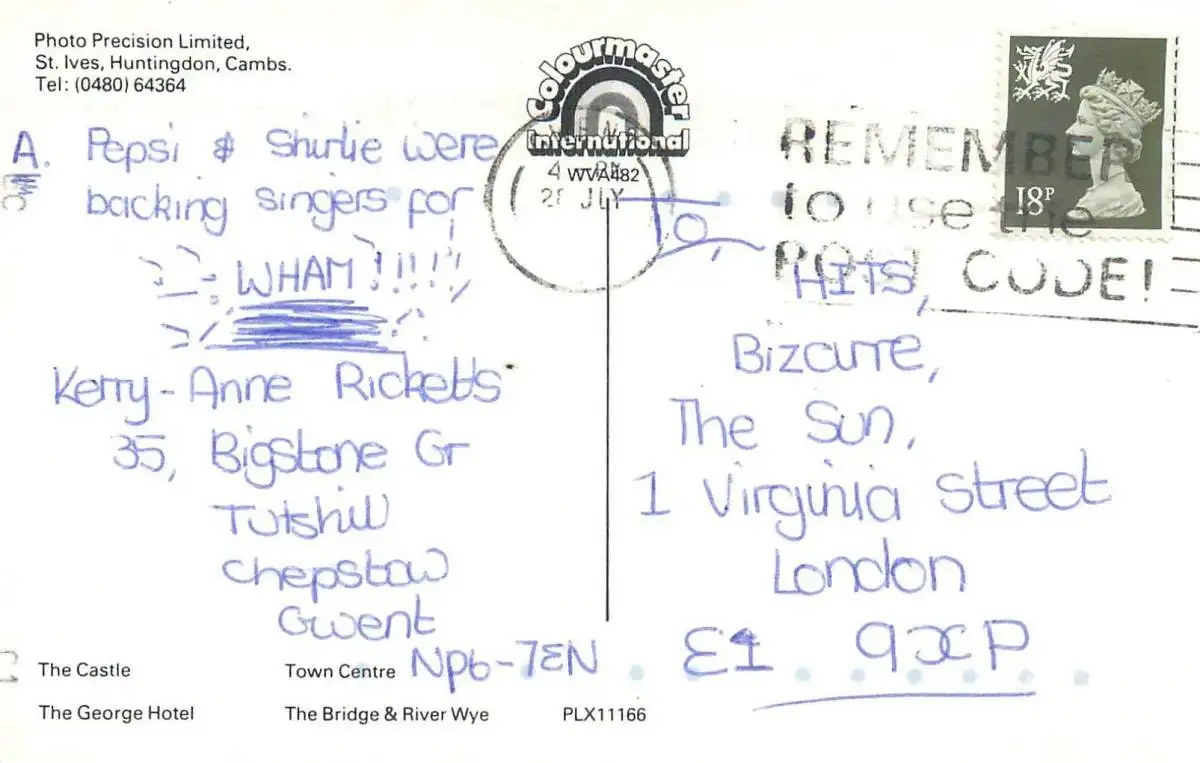 Photo Precision Limited,
St. Ives, Huntingdon, Cambs.
Tel: (0480) 64364
Colourmaster
International
WVA482
28 JLY
REMEMBER
to use the
POST CODE!
18P
A. Pepsi & Shirlie were
backing singers for,
WHAM!!!!!
Kerry-Anne Ricketts
35, Bigstone Gr
Tutshill
Chepstow
Gwent
NP6-7EN
To,
HITS,
Bizarre,
The Sun,
1 Virginia Street
London
E1 9XP
The Castle
Town Centre
The George Hotel
The Bridge & River Wye
PLX11166